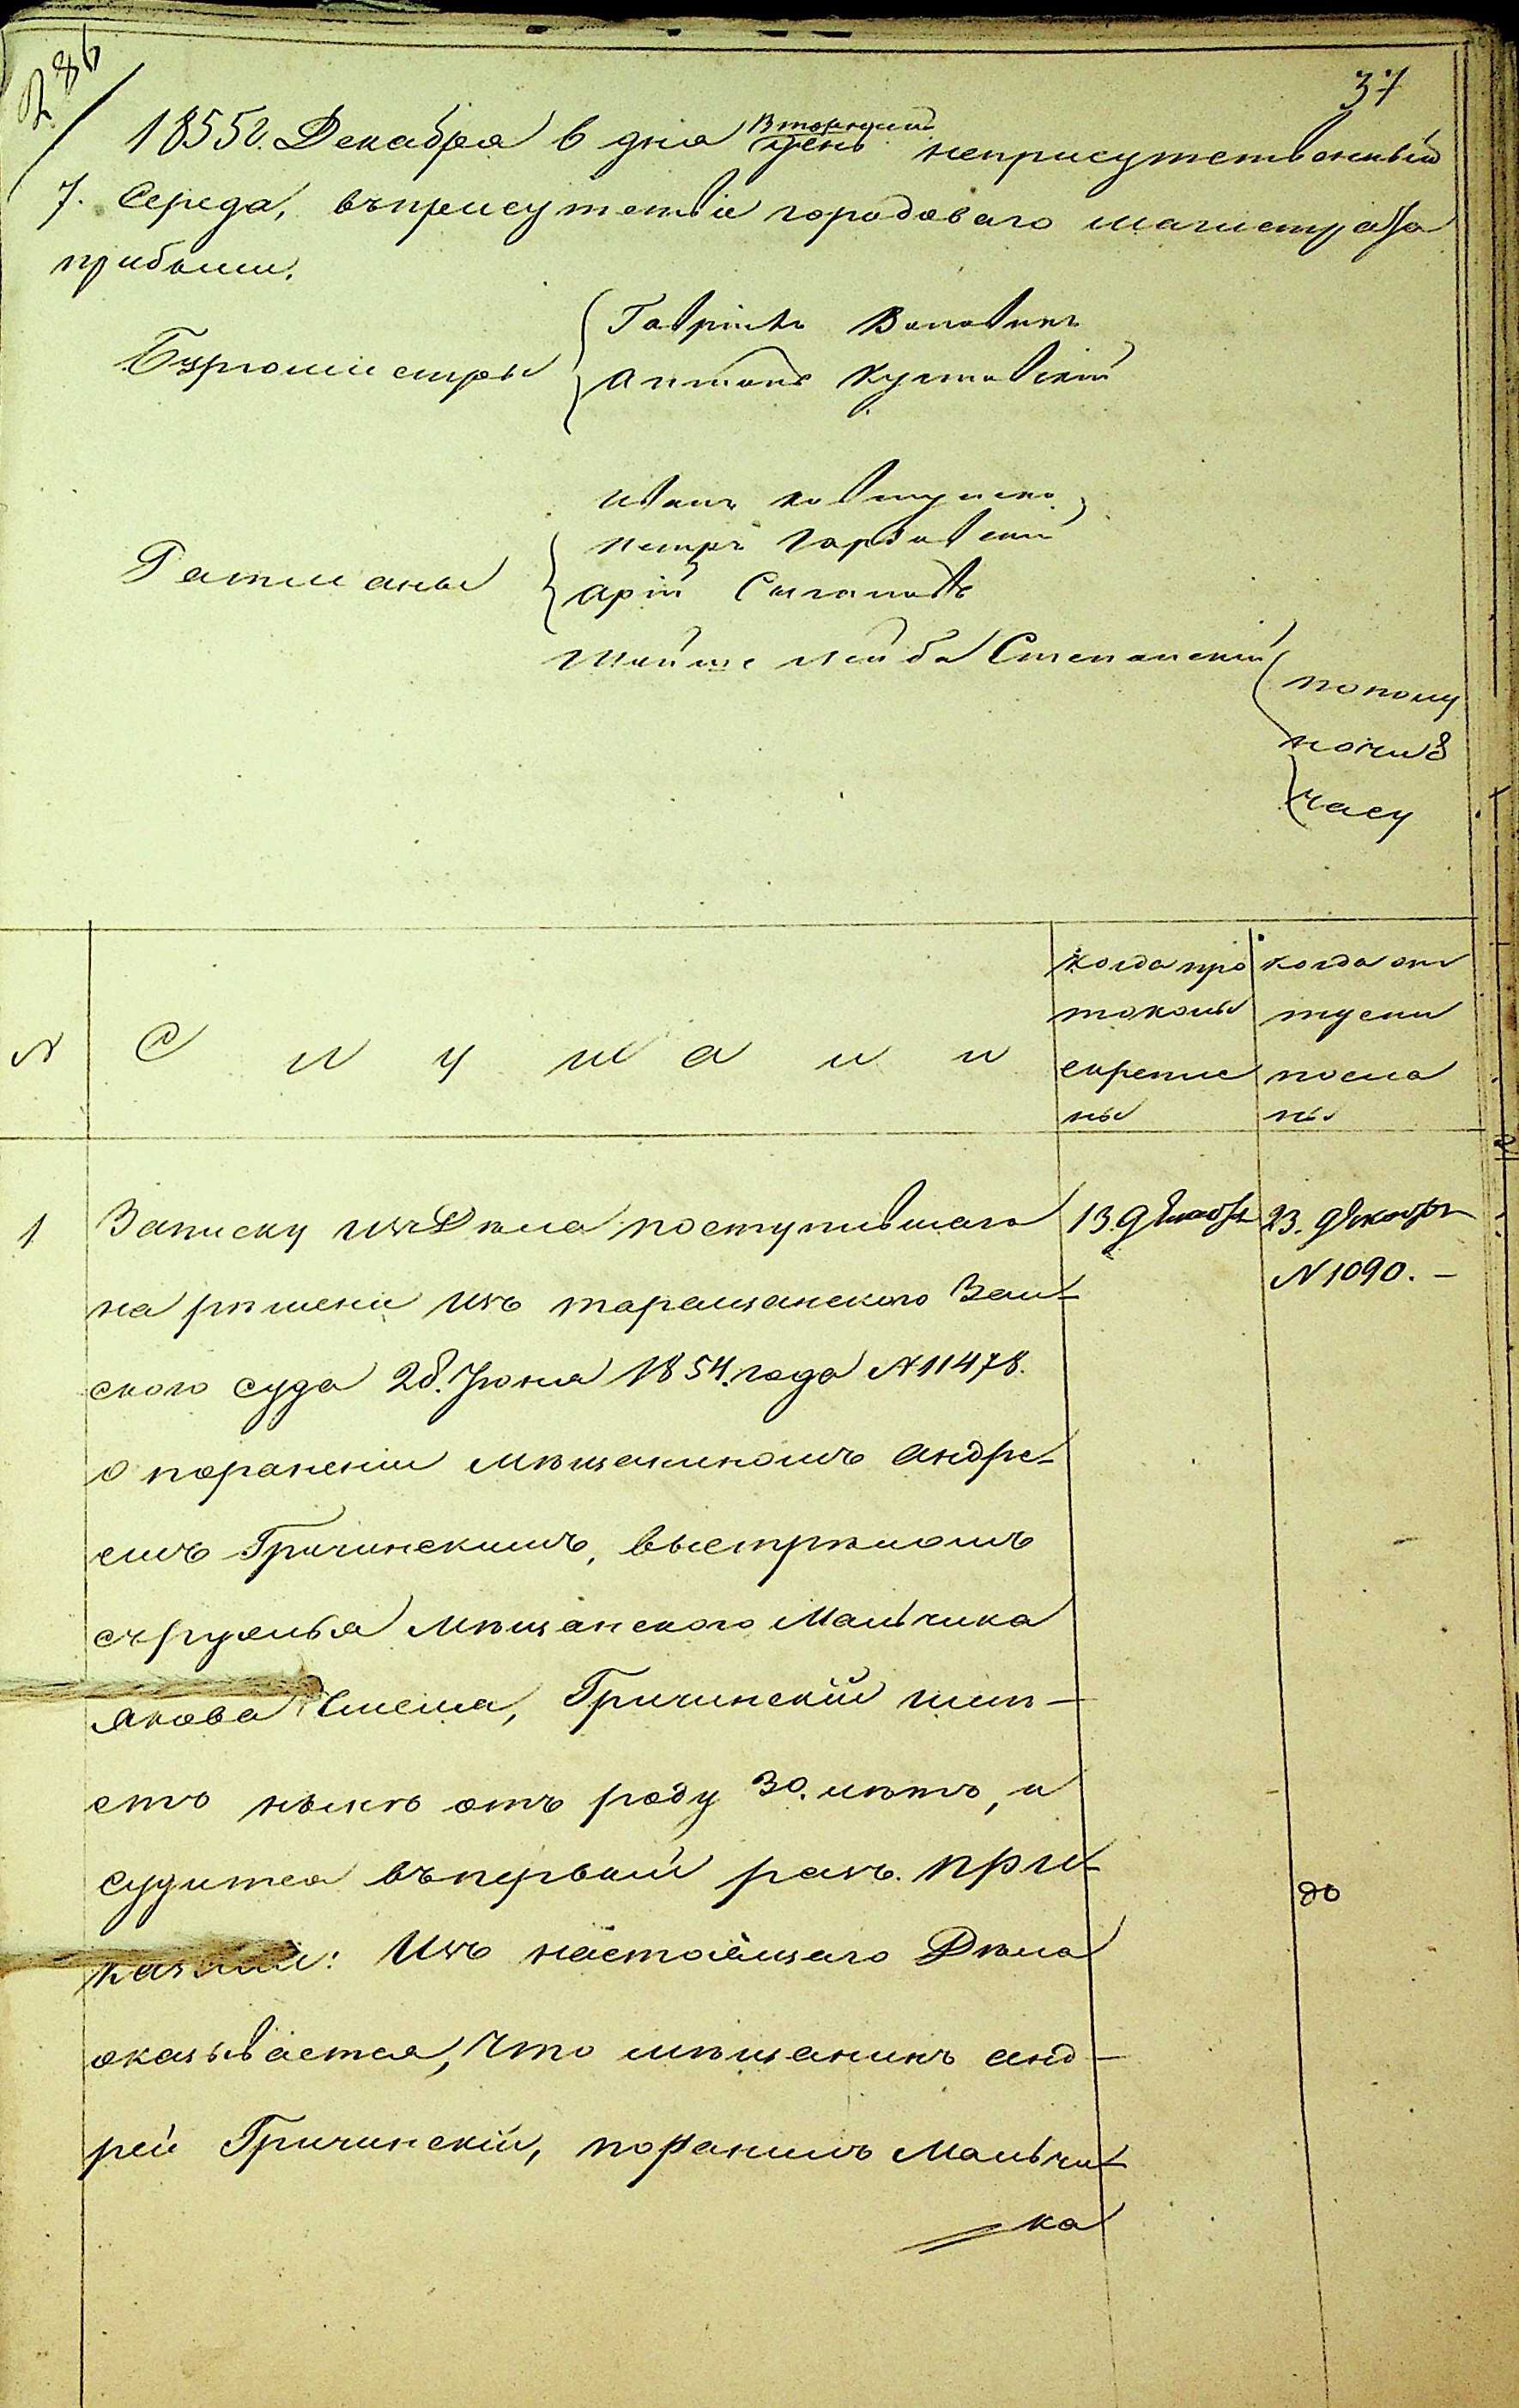 286
37
1855 г. Декабря 6 дня Вторникъ день неприсутственный
7. Середа, въ присутствіе городоваго магистрата
прибыли.
Бургомистры
Гавріилъ
Антонъ
Ратманы
Иванъ Ковтуненко
Петръ
Арій
Лейба Степанскій
пополу
ночи 8
часу
N
Слушали
когда про
токолы
скрепле
ны
когда от
пуски
посла
ны
1
Записку изъ Дѣла поступившаго
на рѣшеніе изъ таращанского Зем-
ского суда 28. Іюня 1854. года N 11478.
о пораненіи мѣщаниномъ Андре-
емъ Гричинскимъ, выстрѣломъ
съ ружья мѣщанского Мальчика
Якова, Гричинскій имѣ-
етъ нынѣ отъ роду 30. лѣтъ, и
судится въ первый разъ. при-
казали: Изъ настоящаго Дѣла
оказывается, что мѣщанинъ Анд-
рей Гричинскій, поранилъ Мальчи-
ка
13. Декабря
23. Декабря
N 1090. -